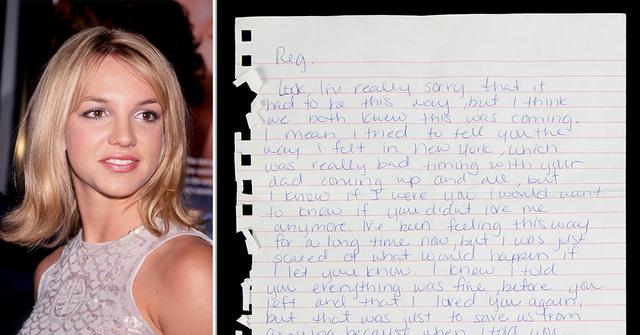 Reg,
Look, I'm really sorry that it
had to be this way, but I think
we both knew this was coming.
I mean I tried to tell you the
way I felt in New York, which
was really bad timing with your
dad coming up and all, but
I know if I were you I would want
to know if you didn't love me
anymore. I've been feeling this way
for a long time now, but I was just
scared of what would happen if
I let you know. I know I told
you everything was fine before you
left and that I loved you again,
but that was just to save us from
arguing because when I told you